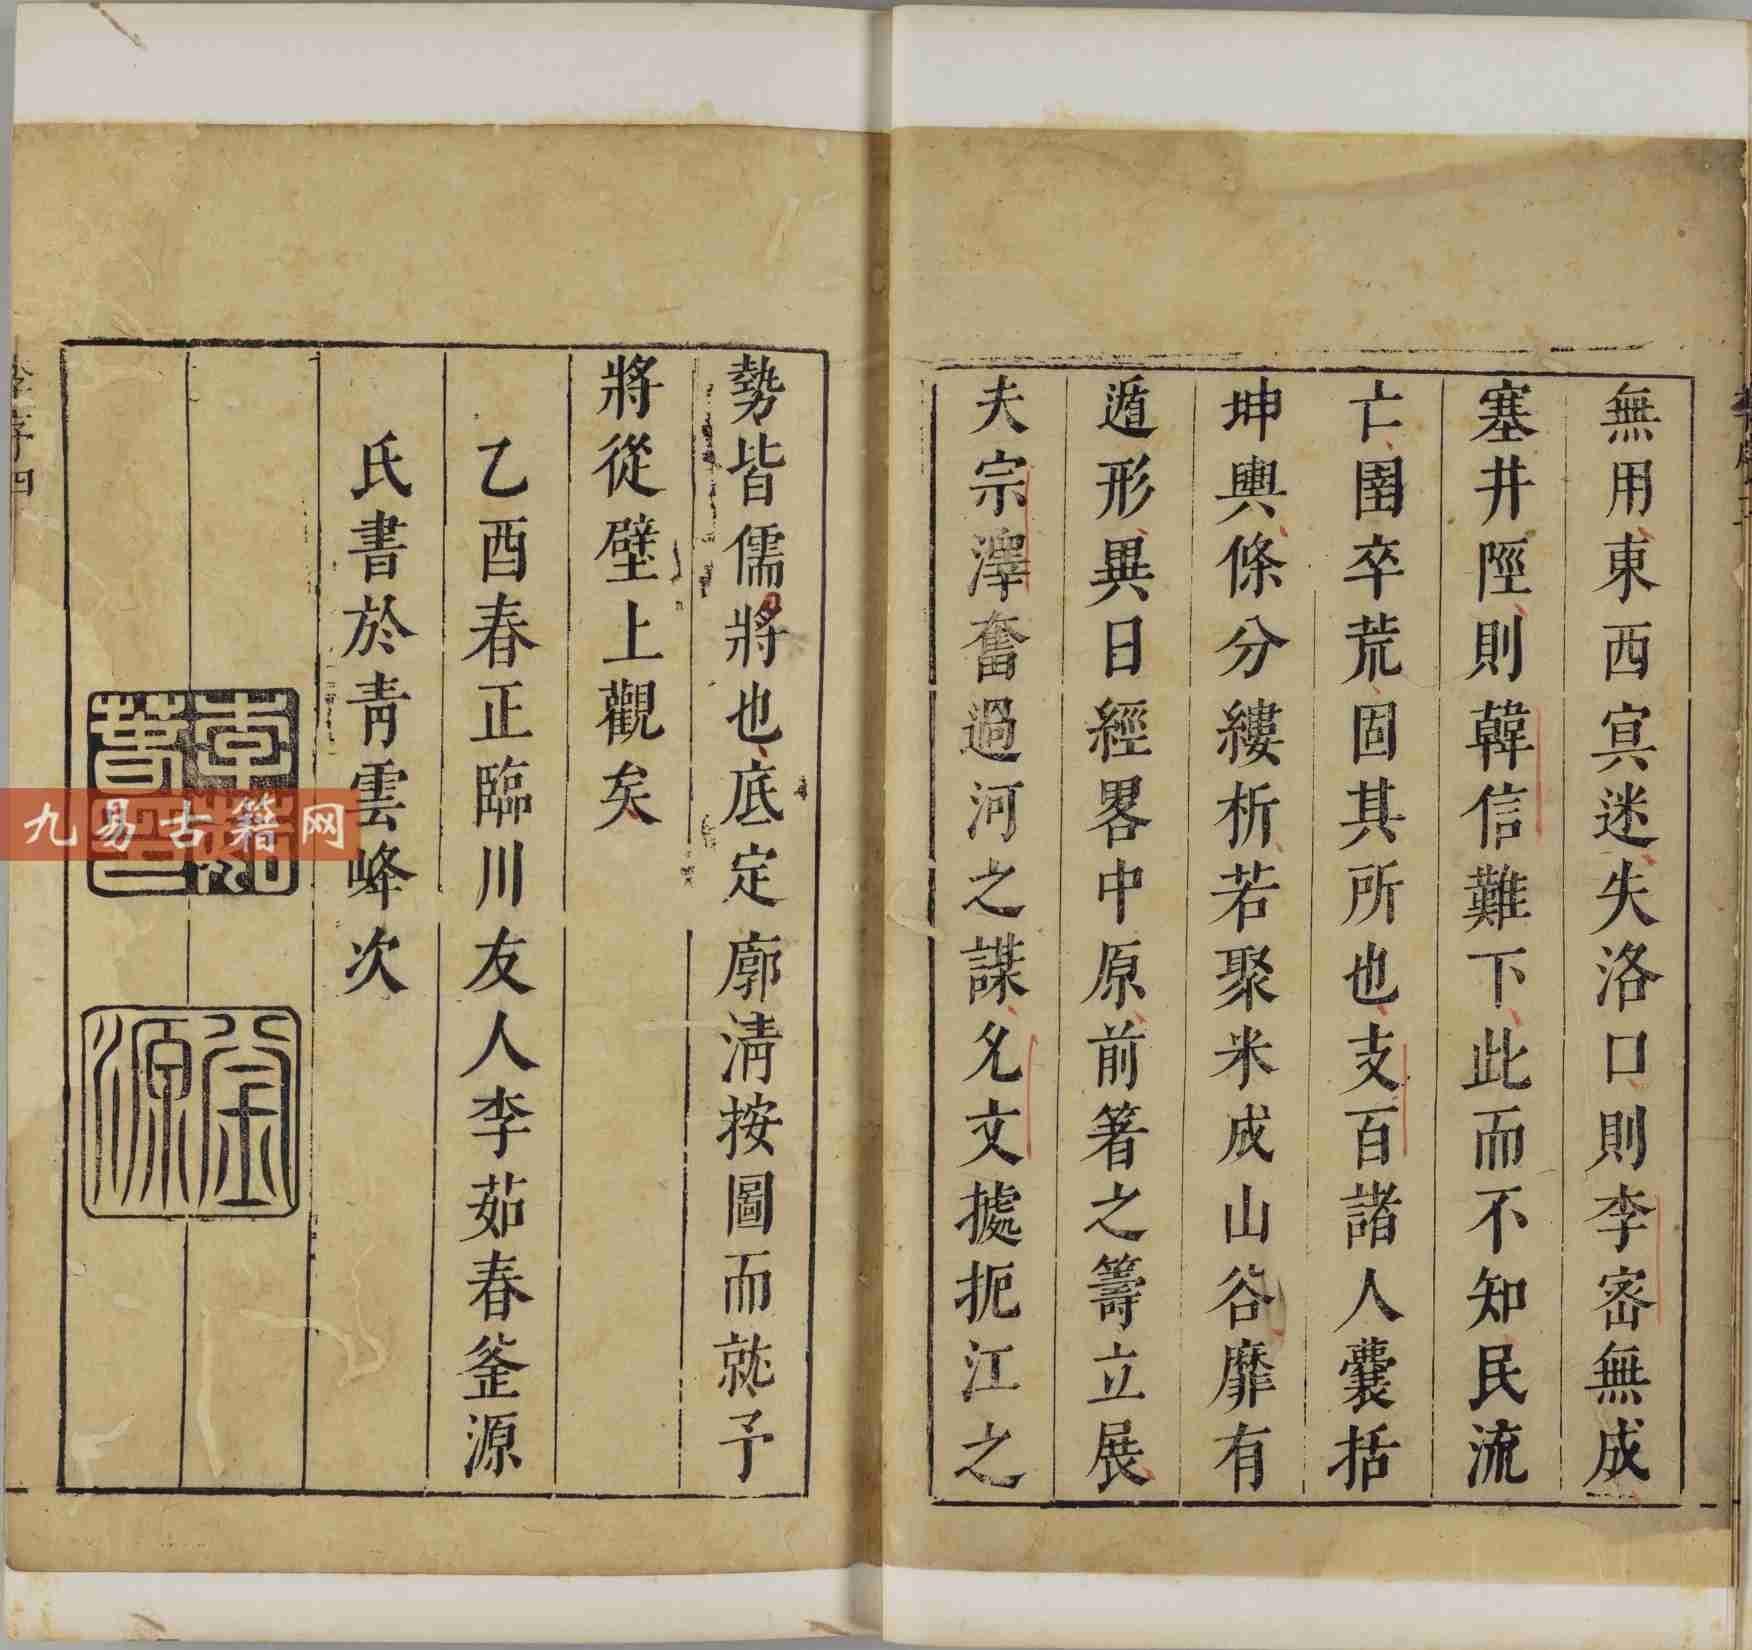 無用東西冥迷失洛口則李密無成
塞井陘則韓信難下此而不知民流
亡圉卒荒固其所也支百諸人囊括
坤輿條分縷析若聚米成山谷靡有
遁形異日經畧中原前箸之籌立展
夫宗澤奮過河之謀允文據扼江之
勢皆儒將也底定廓淸按圖而就予
將從壁上觀矣
乙酉春正臨川友人李茹春釜源
氏書於靑雲峰次
李茹春印
釜源
九易古籍网